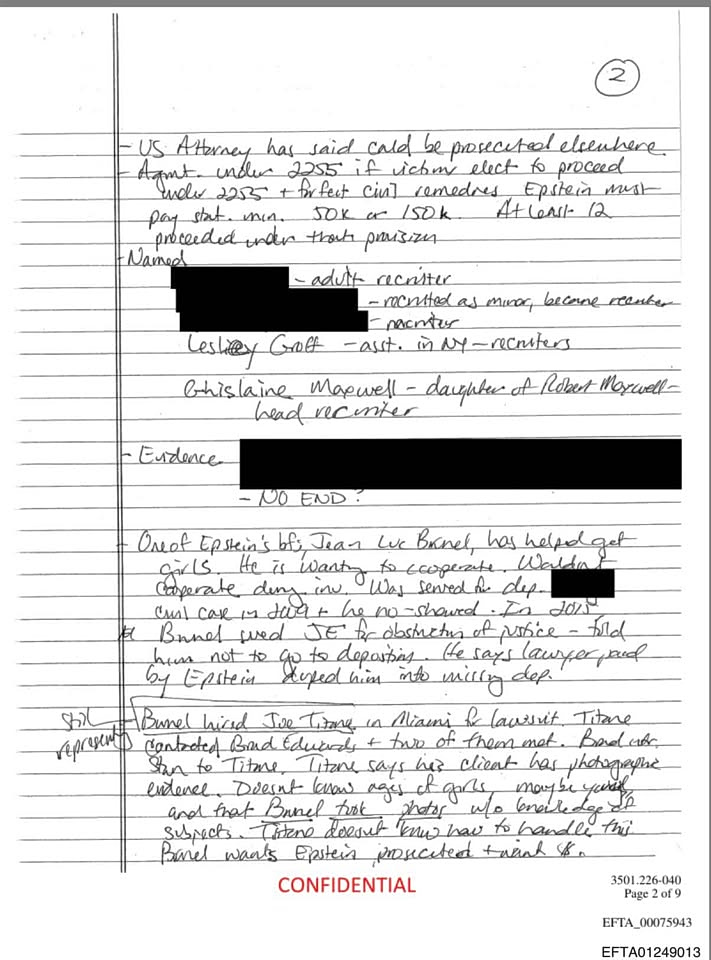 2
- US Attorney has said could be prosecuted elsewhere.
- Agmt. under 2255 if victims elect to proceed
under 2255 + forfeit civil remedies Epstein must
pay stat. min. 50k or 150k. At least 12
proceeded under that provision
- Named
- adult recruiter
- recruited as minor, became recruiter
- recruiter
Lesley Groff - asst. in NY - recruiters
Ghislaine Maxwell - daughter of Robert Maxwell -
head recruiter
- Evidence
- NO END?
- One of Epstein's bfs, Jean Luc Brunel, has helped get
girls. He is wanting to cooperate. Wouldn't
cooperate during inv. Was served for dep.
civil case in 2009 + he no-showed. In 2015
Brunel sued JE for obstruction of justice - told
him not to go to deposition. He says lawyer paid
by Epstein duped him into missing dep.
still
represents
- Brunel hired Joe Titone in Miami for lawsuit. Titone
contacted Brad Edwards + two of them met. Brad intr.
Stan to Titone. Titone says his client has photographic
evidence. Doesn't know ages of girls, maybe
and that Brunel took photos w/o knowledge of
subjects. Titone doesn't know how to handle this
Brunel wants Epstein prosecuted + want $.
CONFIDENTIAL
3501.226-040
Page 2 of 9
EFTA_00075943
EFTA01249013